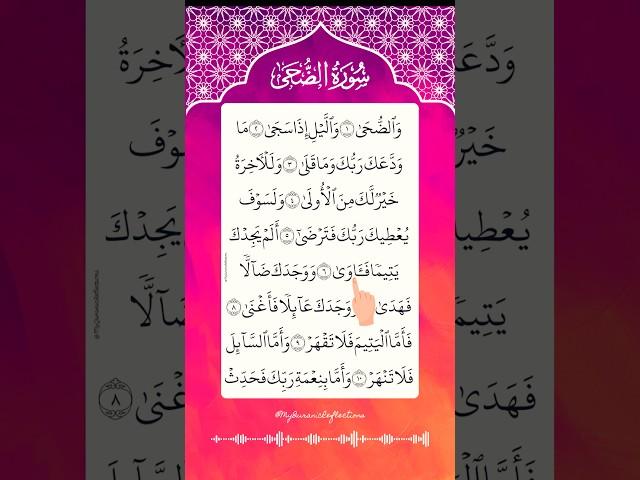 سُورَةُ الضُّحَىٰ
وَٱلضُّحَىٰ ۝١ وَٱلَّيْلِ إِذَا سَجَىٰ ۝٢ مَا
وَدَّعَكَ رَبُّكَ وَمَا قَلَىٰ ۝٣ وَلَلْآخِرَةُ
خَيْرٌ لَّكَ مِنَ ٱلْأُولَىٰ ۝٤ وَلَسَوْفَ
يُعْطِيكَ رَبُّكَ فَتَرْضَىٰٓ ۝٥ أَلَمْ يَجِدْكَ
يَتِيمًا فَـَٔاوَىٰ ۝٦ وَوَجَدَكَ ضَآلًّا
فَهَدَىٰ وَجَدَكَ عَآئِلًا فَأَغْنَىٰ ۝٨
فَأَمَّا ٱلْيَتِيمَ فَلَا تَقْهَرْ ۝٩ وَأَمَّا ٱلسَّآئِلَ
فَلَا تَنْهَرْ ۝١٠ وَأَمَّا بِنِعْمَةِ رَبِّكَ فَحَدِّثْ
@MyQuranicReflections